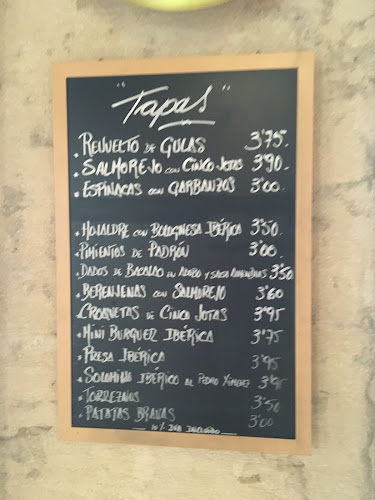 "Tapas"
. REVUELTO DE GULAS 3'75.
. SALMOREJO CON CINCO JOTAS 3'90.
. ESPINACAS CON GARBANZOS 3'00.
. HOJALDRE CON BOLOGNESA IBÉRICA 3'50.
. PIMIENTOS DE PADRÓN 3'00.
. DADOS DE BACALAO EN ADOBO Y SALSA 3'50
. BERENJENAS CON SALMOREJO 3'60
. CROQUETAS DE CINCO JOTAS 3'95
. MINI BURGUER IBÉRICA 3'75
. PRESA IBÉRICA 3'95
. SOLOMILLO IBÉRICO AL PEDRO XIMENEZ 3'95
. TORREZNOS 3'50
. PATATAS BRAVAS 3'00
10% IVA INCLUIDO